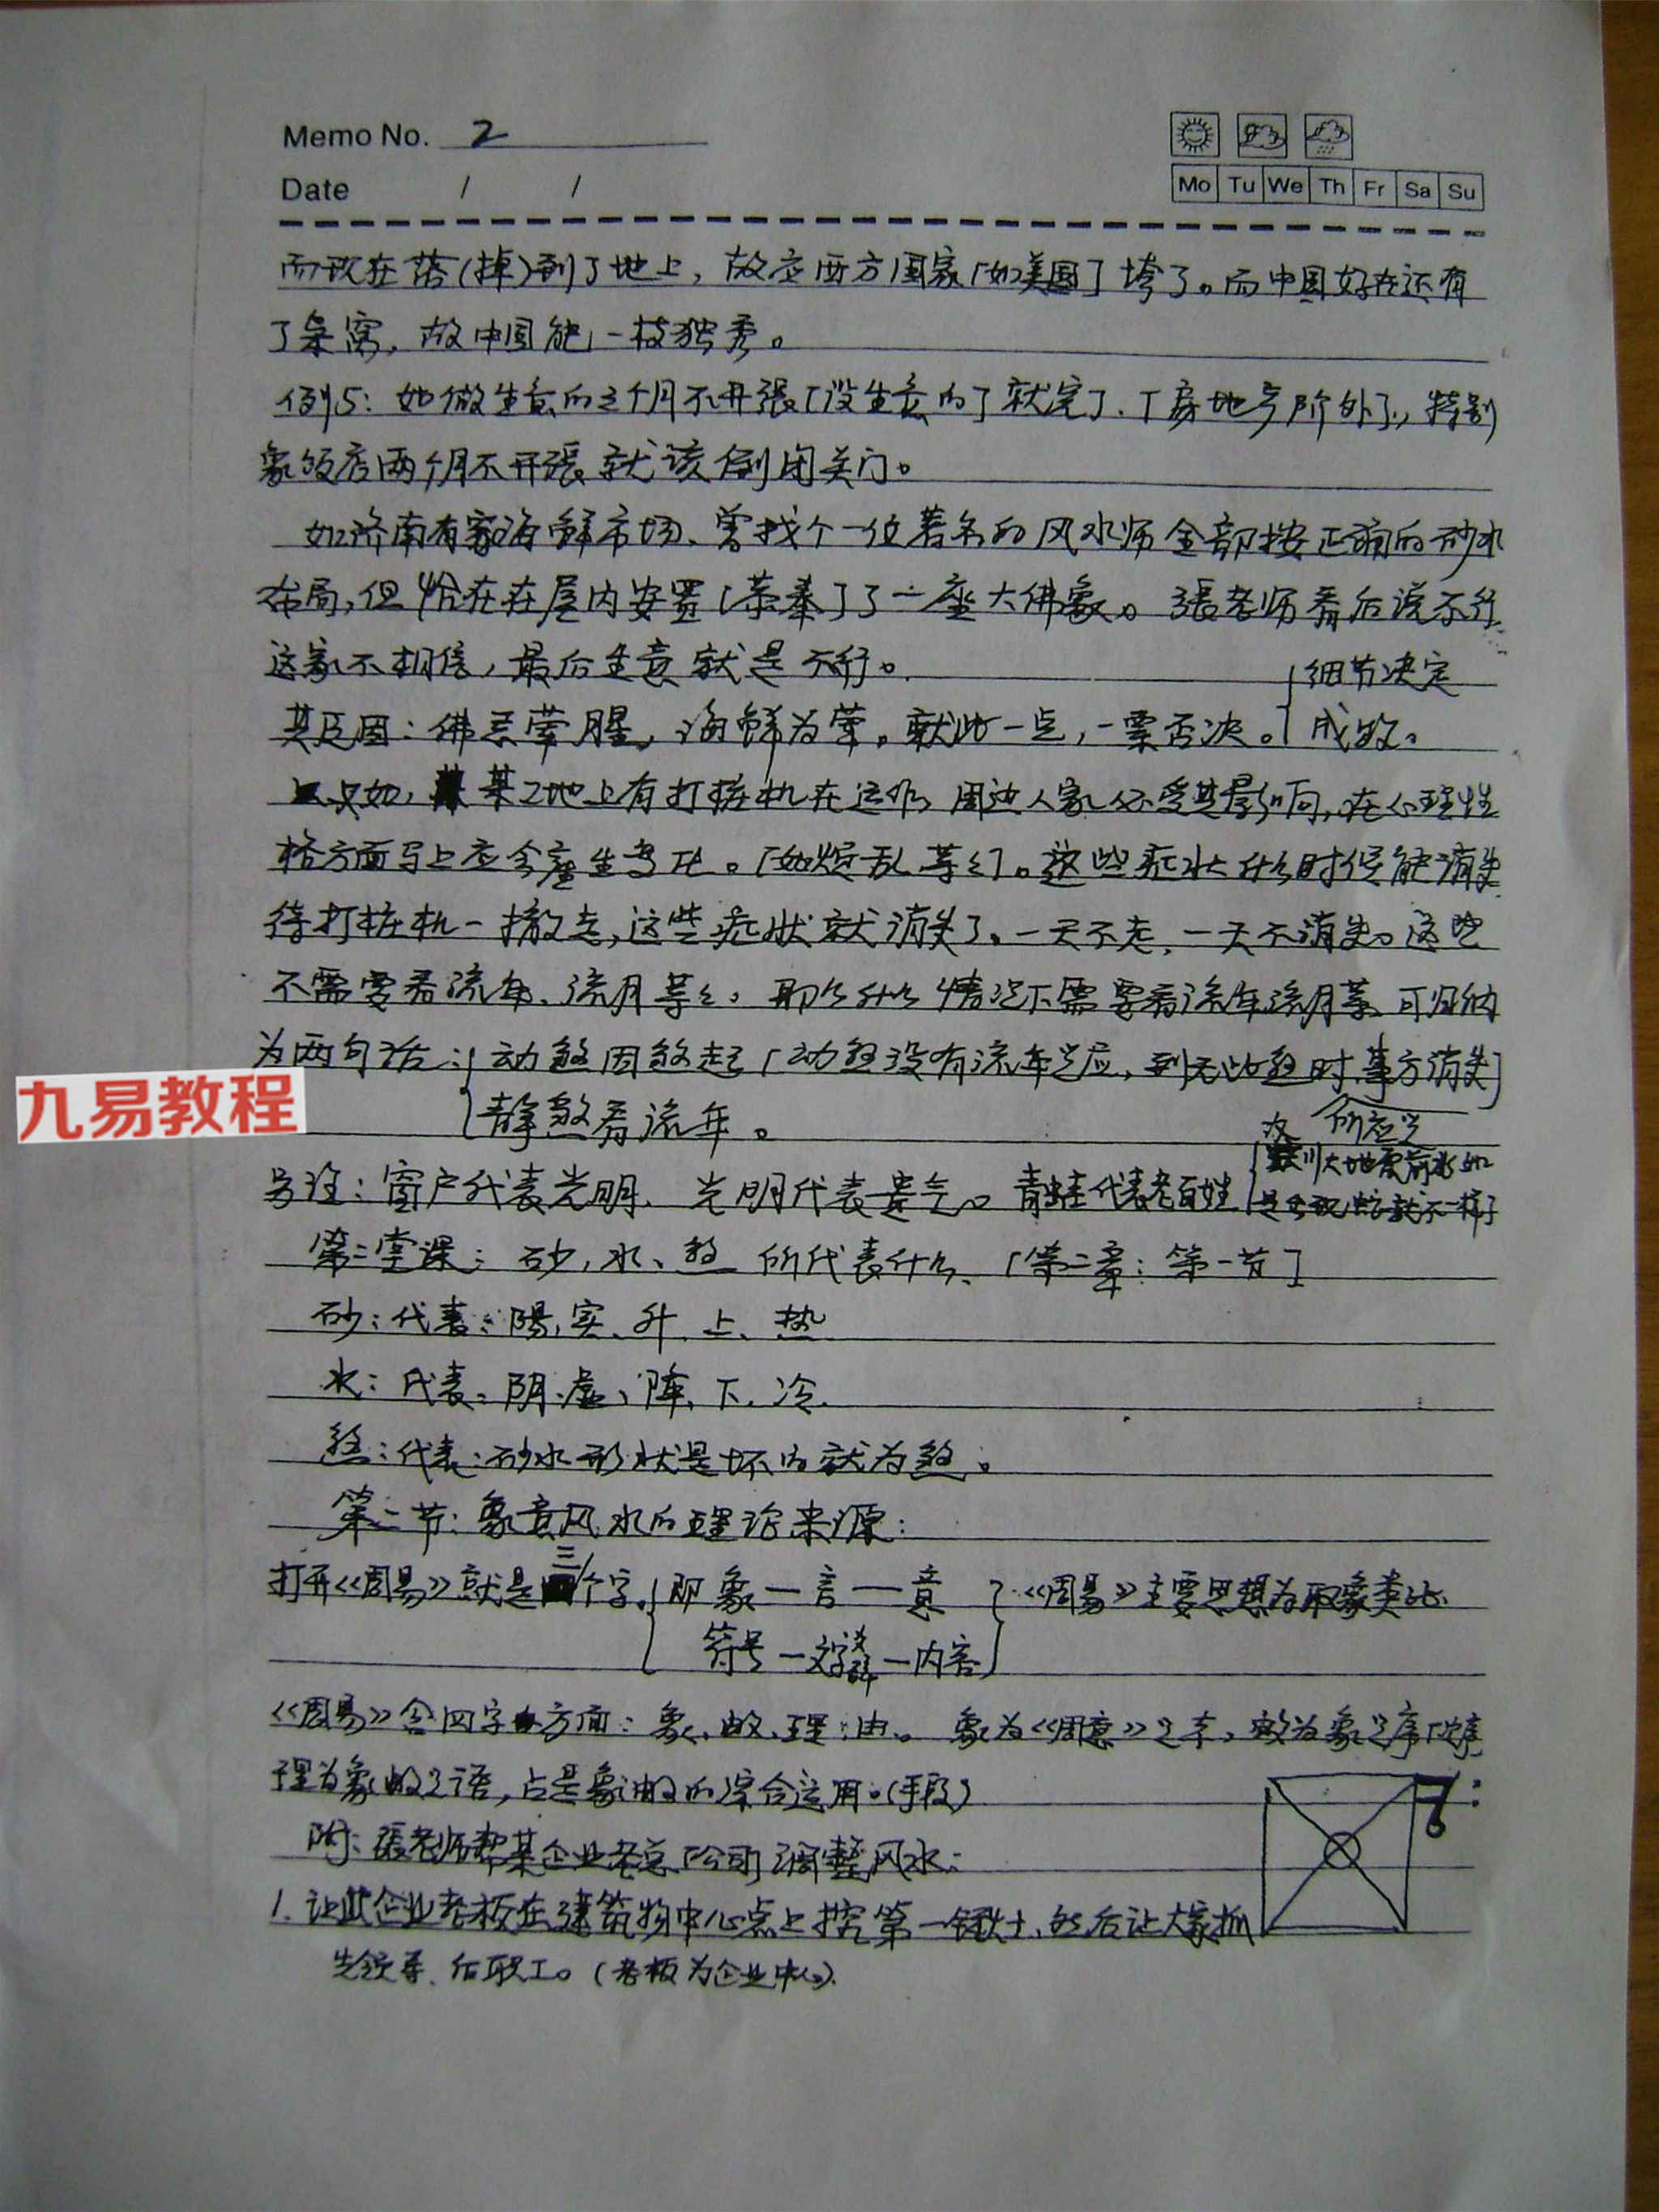 Memo No. 2
Date / /
Mo Tu We Th Fr Sa Su
而现在落(掉)到了地上，故应西方国家「如美国」垮了。而中国好在还有
了巢窝，故中国能一枝独秀。
例5：如做生意的三个月不开張「没生意的」就完了.「房地产除外」，特别
象饭店两个月不开張就该倒闭关门。
如济南有家海鲜市场、曾找个一位著名的风水师全部按正确的砂水
布局，但恰在在屋内安置「恭奉」了一座大佛象。張老师看后说不行
这家不相信，最后生意就是不行。
{细节决定
其原因：佛忌荤腥，海鲜为荤。就此一点，一票否决。 成败。
又如，某工地上有打桩机在运作，周边人家必受其影响，在心理性
格方面马上应会産生变化。「如烦乱等等」。这些症状什么时候能消失
待打桩机一撤走，这些症状就消失了。一天不走，一天不消失。这些
不需要看流年、流月等等。那么什么情况不需要看流年流月等、可归纳
为两句话：{动煞因煞起「动煞没有流年之应，到无此煞时事方消失」
静煞看流年。
所应之
另注：窗户代表光明、光明代表貴气。青蛙代表老百姓
川大地震前 如
是出现蛇就不一样了
第二堂课：砂，水、煞所代表什么、「第二章：第一节」
砂：代表：陽，实、升、上、热
水：代表：阴、虚、降、下、冷.
煞：代表：砂水形状是坏的就为煞。
第二节：象意风水的理论来源：
打开《周易》就是三个字。{即象一言一意 }《周易》主要思想为取象类比.
符号一文字 一内容
《周易》含四字 方面：象、数、理、占。象为《周意》之本，数为象之序
理为象数之语，占是象 数的综合运用。(手段)
附：張老师帮某企业老总「公司」调整风水：
1. 让此企业老板在建筑物中心点上挖第一锹土、然后让大家抓
先领导、后职工。(老板为企业中心).
九易教程